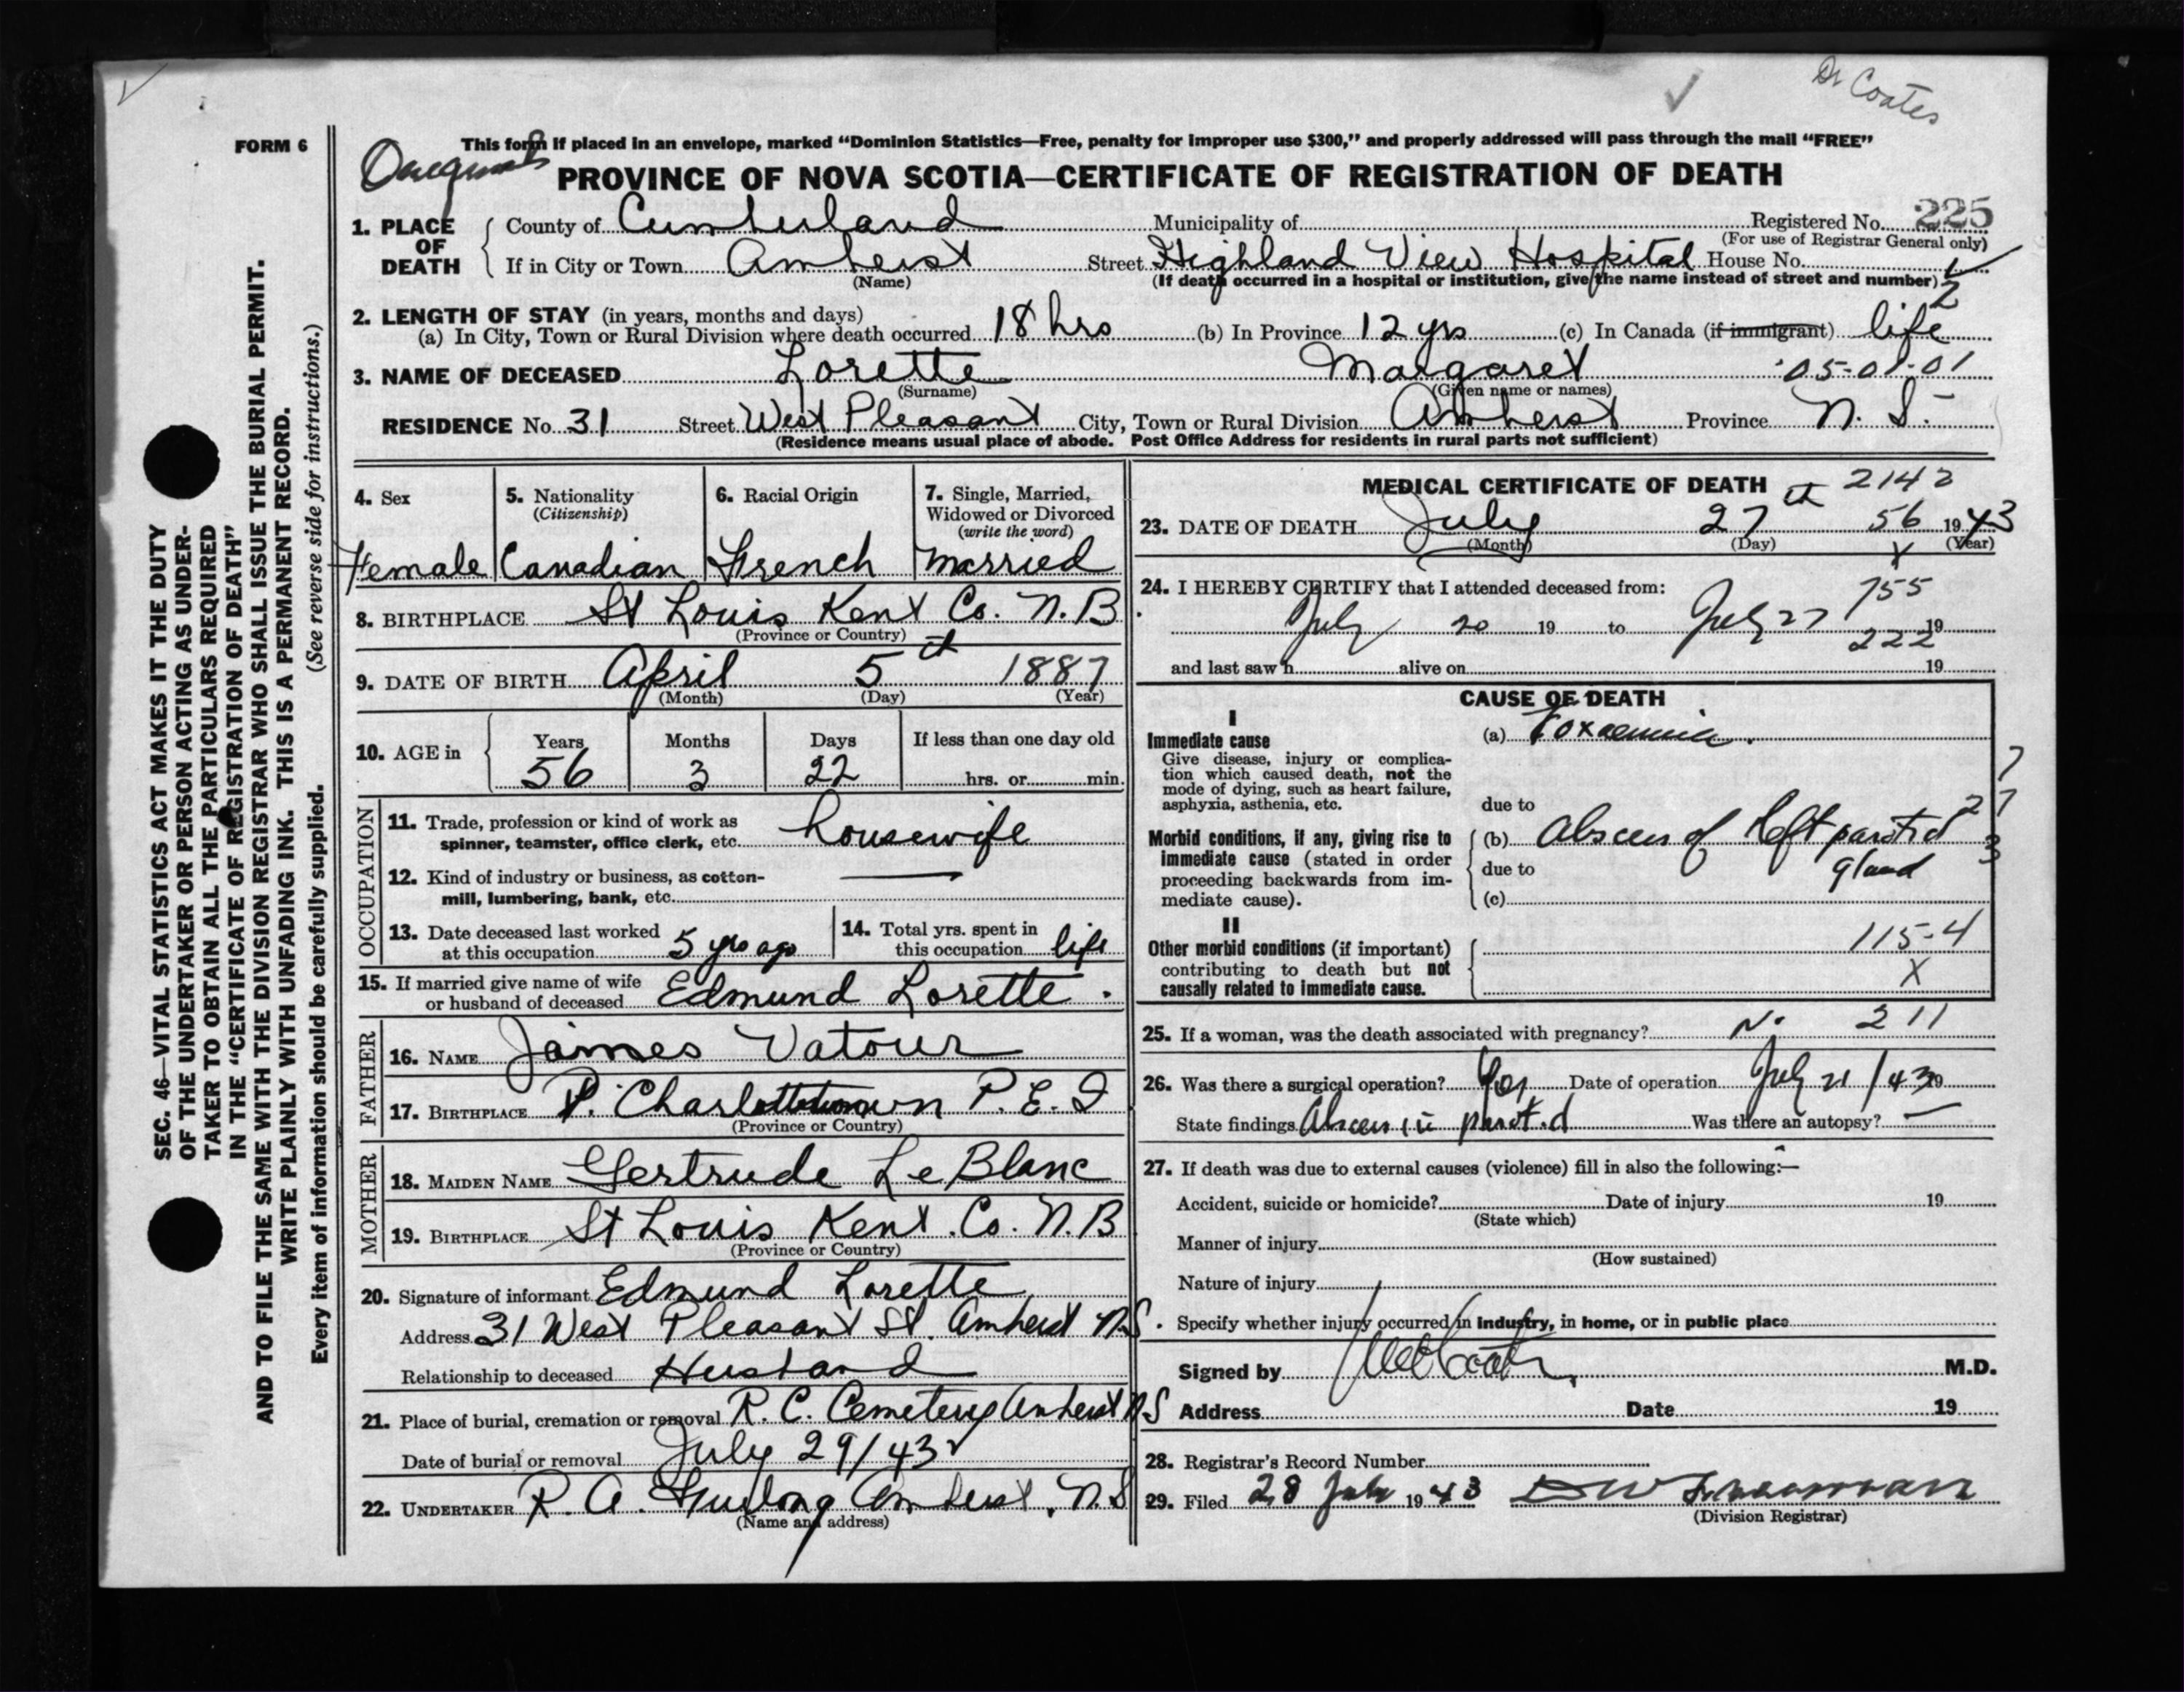 Dr Coates
FORM 6
This form if placed in an envelope, marked “Dominion Statistics—Free, penalty for improper use $300,” and properly addressed will pass through the mail “FREE”
PROVINCE OF NOVA SCOTIA—CERTIFICATE OF REGISTRATION OF DEATH
1. PLACE OF DEATH County of Cumberland Municipality of Registered No. 225
(For use of Registrar General only)
If in City or Town Amherst Street Highland View Hospital House No.
(Name) (If death occurred in a hospital or institution, give the name instead of street and number)
2. LENGTH OF STAY (in years, months and days)
(a) In City, Town or Rural Division where death occurred 18 hrs (b) In Province 12 yrs (c) In Canada (if immigrant) life
3. NAME OF DECEASED Lorette Margaret 05-01-01
(Surname) (Given name or names)
RESIDENCE No. 31 Street West Pleasant City, Town or Rural Division Amherst Province N. S.
(Residence means usual place of abode. Post Office Address for residents in rural parts not sufficient)
4. Sex 5. Nationality 6. Racial Origin 7. Single, Married,
(Citizenship) Widowed or Divorced
(write the word)
Female Canadian French Married
8. BIRTHPLACE St Louis Kent Co. N. B
(Province or Country)
9. DATE OF BIRTH April 5th 1887
(Month) (Day) (Year)
10. AGE in Years Months Days If less than one day old
56 3 22 hrs. or min.
OCCUPATION
11. Trade, profession or kind of work as
spinner, teamster, office clerk, etc. housewife
12. Kind of industry or business, as cotton-
mill, lumbering, bank, etc.
13. Date deceased last worked
at this occupation 5 yrs ago
14. Total yrs. spent in
this occupation life
15. If married give name of wife
or husband of deceased Edmund Lorette.
FATHER
16. NAME James Vatour
17. BIRTHPLACE Charlottetown P. E. I
(Province or Country)
MOTHER
18. MAIDEN NAME Gertrude Le Blanc
19. BIRTHPLACE St Louis Kent. Co. N. B
(Province or Country)
20. Signature of informant Edmund Lorette
Address 31 West Pleasant St. Amherst N.S.
Relationship to deceased Husband
21. Place of burial, cremation or removal R. C. Cemetery Amherst N S
Date of burial or removal July 29/43
22. UNDERTAKER R. A. Furlong Amherst, N. S
(Name and address)
MEDICAL CERTIFICATE OF DEATH 2142
23. DATE OF DEATH July 27th 56 1943
(Month) (Day) X (Year)
24. I HEREBY CERTIFY that I attended deceased from: 755
July 20 19 to July 27 19
222
and last saw h alive on 19
CAUSE OF DEATH
I
Immediate cause
Give disease, injury or complica-
tion which caused death, not the
mode of dying, such as heart failure,
asphyxia, asthenia, etc.
(a) Toxaemia.
7
due to
27
Morbid conditions, if any, giving rise to
immediate cause (stated in order
proceeding backwards from im-
mediate cause).
(b) Abscess of left parotid
3
due to gland
(c)
II
Other morbid conditions (if important)
contributing to death but not
causally related to immediate cause.
115-4
X
25. If a woman, was the death associated with pregnancy? No 211
26. Was there a surgical operation? Yes Date of operation July 21/43 19
State findings Abscess in parotid Was there an autopsy? —
27. If death was due to external causes (violence) fill in also the following:—
Accident, suicide or homicide? Date of injury 19
(State which)
Manner of injury
(How sustained)
Nature of injury
Specify whether injury occurred in industry, in home, or in public place
Signed by Coates M.D.
Address Date 19
28. Registrar's Record Number
29. Filed 28 July 1943
(Division Registrar)
SEC. 46—VITAL STATISTICS ACT MAKES IT THE DUTY
OF THE UNDERTAKER OR PERSON ACTING AS UNDER-
TAKER TO OBTAIN ALL THE PARTICULARS REQUIRED
IN THE “CERTIFICATE OF REGISTRATION OF DEATH”
AND TO FILE THE SAME WITH THE DIVISION REGISTRAR WHO SHALL ISSUE THE BURIAL PERMIT.
WRITE PLAINLY WITH UNFADING INK. THIS IS A PERMANENT RECORD.
Every item of information should be carefully supplied. (See reverse side for instructions.)